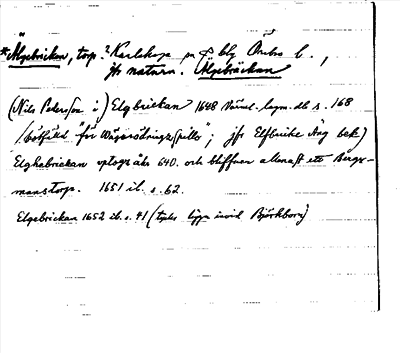 *Älgebräckan, torp. ? Karlskoga sn o. bbg Örebro l.,
jfr naturn. Älgebräckan
(Nils Peterson i) Elgbrickan 1648 Värml. lagm. db s. 168
(bötfälld "för Wågarödningz spille"; jfr Elfbricke Äng bek)
Elghebrickan uptogz åhr 640. och bleff nu allenast ett Bergz-
manstorp. 1651 ib. s. 62.
Elgebrickan 1652 ib. s. 41 (tycks ligga invid Björkborn)